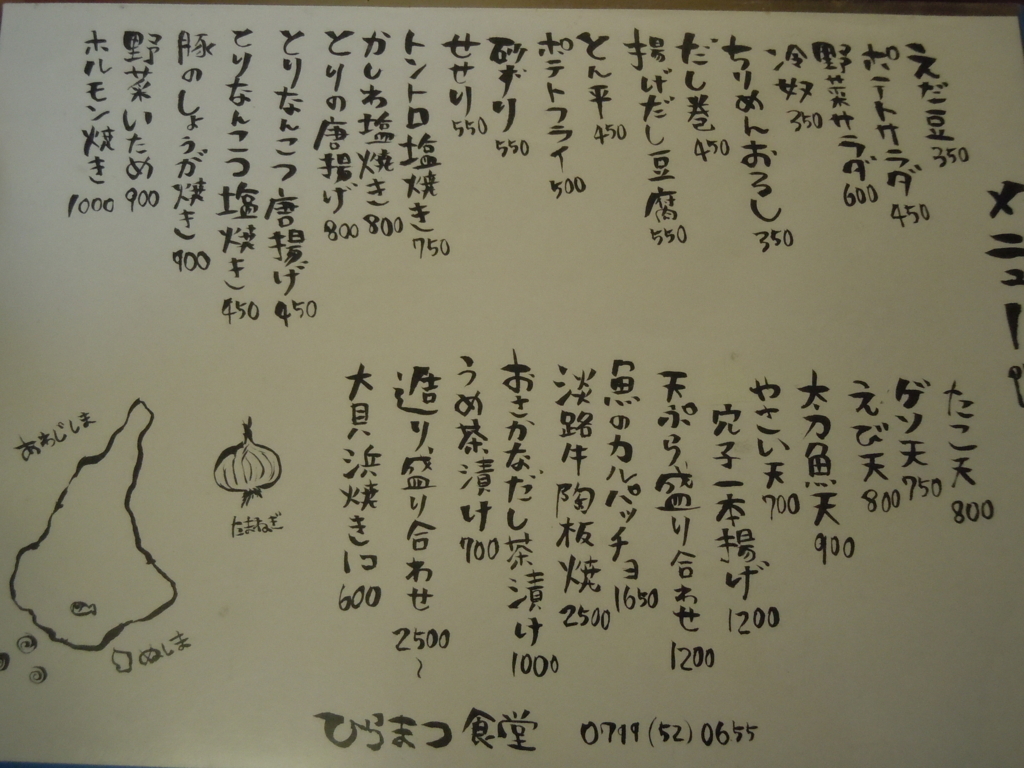 メニュー
えだ豆 350
ポテトサラダ 450
野菜サラダ 600
冷奴 350
ちりめんおろし 350
だし巻 450
揚げだし豆腐 550
とん平 450
ポテトフライ 500
砂ずり 550
せせり 550
トントロ塩焼き 750
かしわ塩焼き 800
とりの唐揚げ 800
とりなんこつ唐揚げ 450
とりなんこつ塩焼き 450
豚のしょうが焼き 900
野菜いため 900
ホルモン焼き 1000
たこ天 800
ゲソ天 750
えび天 800
太刀魚天 900
やさい天 700
穴子一本揚げ 1200
天ぷら盛り合わせ 1200
魚のカルパッチョ 1650
淡路牛陶板焼 2500
おさかなだし茶漬け 1000
うめ茶漬け 700
造り盛り合わせ 2500~
大貝浜焼き1コ 600
たまねぎ
あわじしま
ぬしま
ひらまつ食堂 0799(52)0655